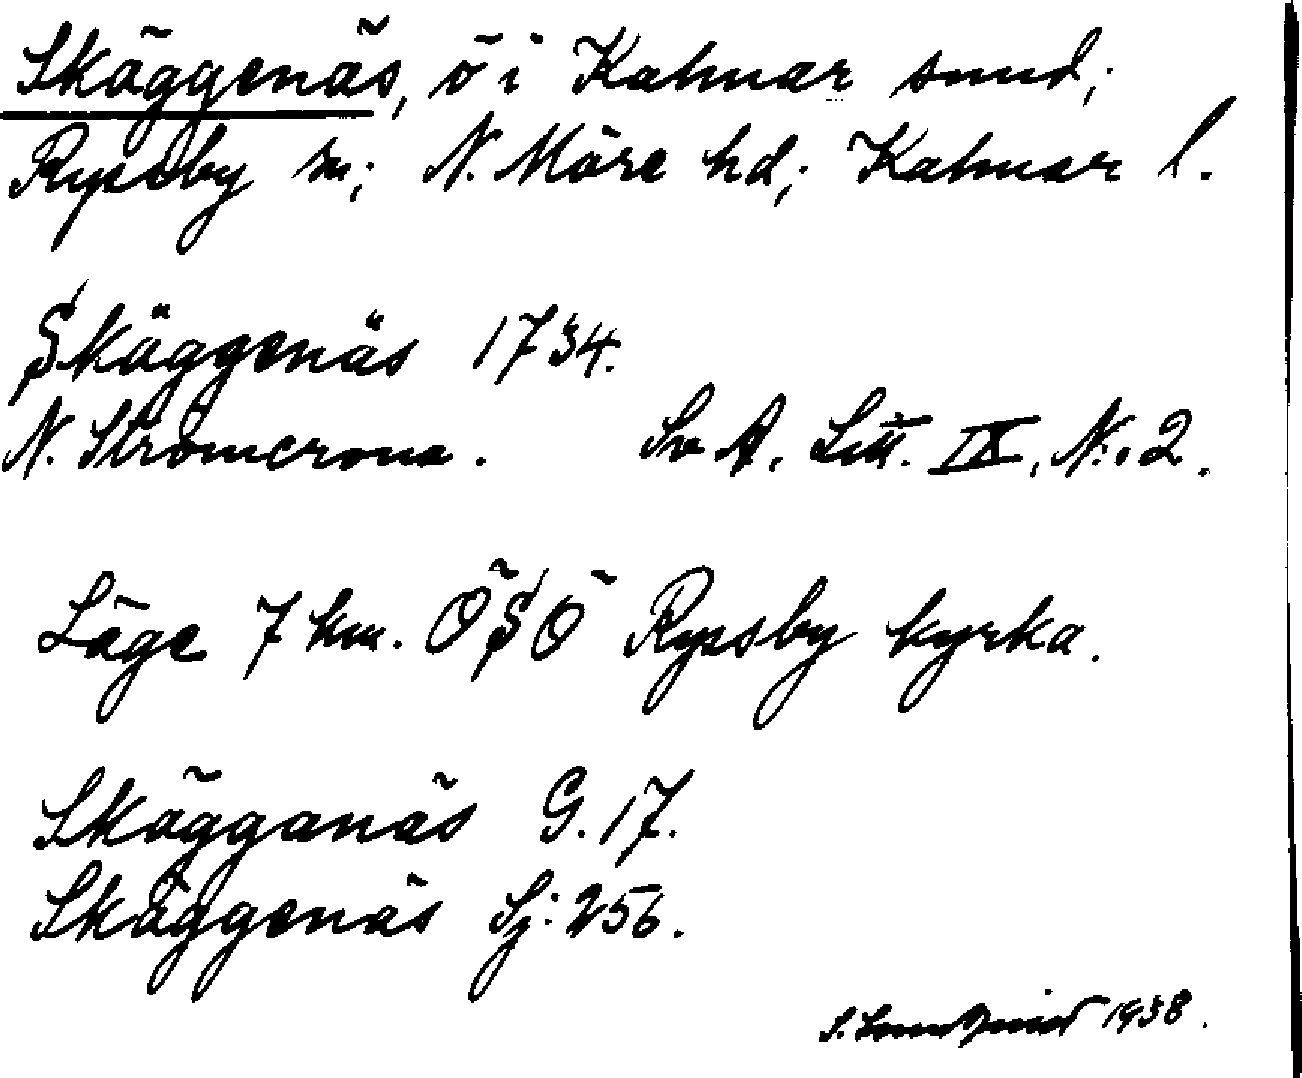 Skäggenäs, ö i Kalmar sund;
Ryssby sn; N. Möre hd; Kalmar l.
Skäggenäs 1734.
N. Strömcrona. Sv A. Litt. IX, N:o 2.
Läge 7 km. ÖSÖ Ryssby kyrka.
Skägganäs G. 17.
Skäggenäs Sj: 256.
S. 1938.